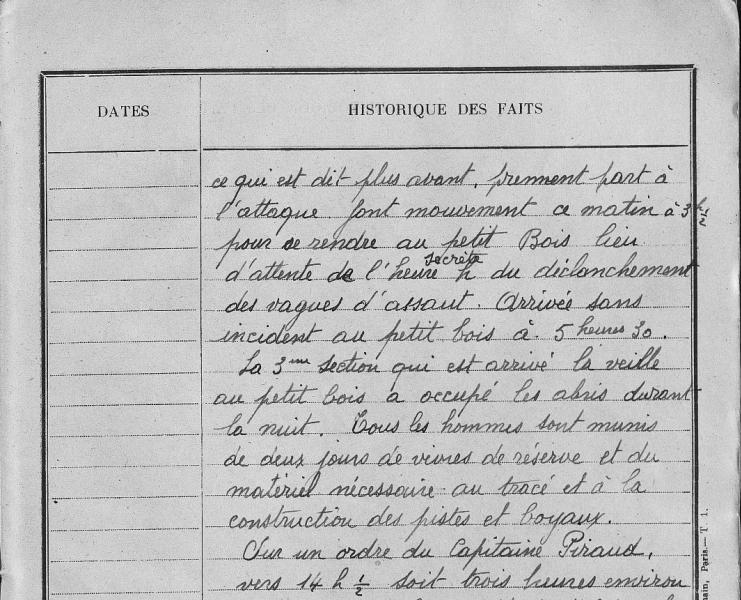 DATES
HISTORIQUE DES FAITS
ce qui est dit plus avant, prennent part à
l'attaque. font mouvement ce matin à 3h ½
pour se rendre au petit Bois lieu
secrète
d'attente de l'heure h du déclanchement
des vagues d'assaut. Arrivée sans
incident au petit bois à 5 heures 30.
La 3me section qui est arrivé la veille
au petit bois a occupé les abris durant
la nuit. Tous les hommes sont munis
de deux jours de vivres de réserve et du
matériel nécessaire au tracé et à la
construction des pistes et boyaux.
Sur un ordre du Capitaine Piraud,
vers 14 h ½ soit trois heures environ
Paris.— T 1.